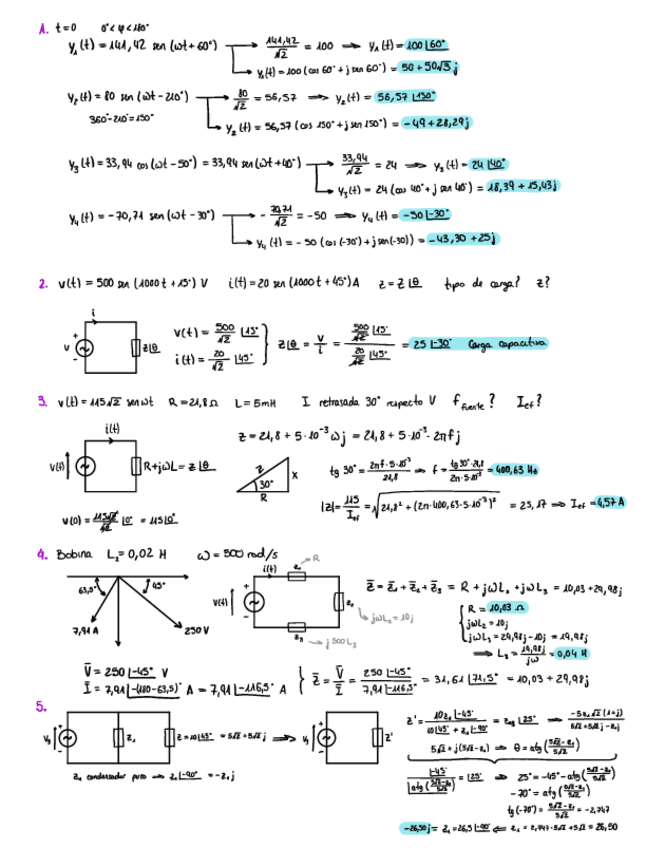 1. t=0 0°<φ<180°
y₁(t) = 141,42 sen (ωt+60°) → 141,42/√2 = 100 ⟹ y₁(t) = 100∠60°
y₁(t) = 100 (cos 60° + j sen 60°) = 50 + 50√3 j
y₂(t) = 80 sen (ωt-210°) → 80/√2 = 56,57 ⟹ y₂(t) = 56,57∠150°
360°-210°=150°
y₂(t) = 56,57 (cos 150° + j sen 150°) = -49+28,29j
y₃(t) = 33,94 cos (ωt-50°) = 33,94 sen (ωt+40°) → 33,94/√2 = 24 ⟹ y₃(t) = 24∠40°
y₃(t) = 24 (cos 40° + j sen 40°) = 18,39 + 15,43j
y₄(t) = -70,71 sen (ωt-30°) → -70,71/√2 = -50 ⟹ y₄(t) = -50∠-30°
y₄(t) = -50 (cos(-30°) + j sen(-30)) = -43,30 + 25j
2. v(t) = 500 sen (1000t + 15°) V i(t) = 20 sen (1000t + 45°) A z = z∠θ tipo de carga? z?
i
v + z∠θ
v(t) = 500/√2 ∠15°
i(t) = 20/√2 ∠45°
z∠θ = v/i = (500/√2 ∠15°)/(20/√2 ∠45°) = 25∠-30° Carga capacitiva
3. v(t) = 115√2 sen ωt R=21,8Ω L=5mH I retrasada 30° respecto V f fuente? I ef?
i(t)
v(t) R+jωL = z∠θ
z = 21,8 + 5·10⁻³ ωj = 21,8 + 5·10⁻³·2πf j
z x 30° R
tg 30° = 2πf·5·10⁻³/21,8 ⟹ f = tg 30°·21,8/2π·5·10⁻³ = 400,63 Hz
|z| = 115/I ef = √(21,8² + (2π·400,63·5·10⁻³)²) = 25,17 ⟹ I ef = 4,57 A
v(0) = 115√2/√2 ∠0° = 115∠0°
4. Bobina L₂=0,02 H ω=500 rad/s
63,5° 45°
7,91 A 250 V
i(t) z₁ → R
v(t) + z₂ → jωL₂ = 10j
z₃ → j500L₃
z̅ = z̅₁ + z̅₂ + z̅₃ = R + jωL₂ + jωL₃ = 10,03 + 29,98j
R = 10,03 Ω
jωL₂ = 10j
jωL₃ = 29,98j - 10j = 19,98j
⟹ L₃ = 19,98j/jω = 0,04 H
V̅ = 250∠-45° V
I̅ = 7,91∠-(180-63,5)° A = 7,91∠-116,5° A
z̅ = V̅/I̅ = 250∠-45°/7,91∠-116,5° = 31,61∠71,5° = 10,03 + 29,98j
5.
+ z₁ z=10∠45° = 5√2+5√2j ⟹ + z'
z₁ condensador puro ⟹ z₁∠-90° = -z₁j
z' = 10z₁∠-45°/10∠45° + z₁∠-90° = z eq∠25°
5√2 + j(5√2-z₁) ⟹ θ = atg((5√2-z₁)/5√2)
25° = -45° - atg((5√2-z₁)/5√2)
-70° = atg((5√2-z₁)/5√2)
tg(-70°) = (5√2-z₁)/5√2 = -2,747
-26,50j = z₁ = 26,5∠-90° ⟸ z₁ = 2,747·5√2+5√2 = 26,50